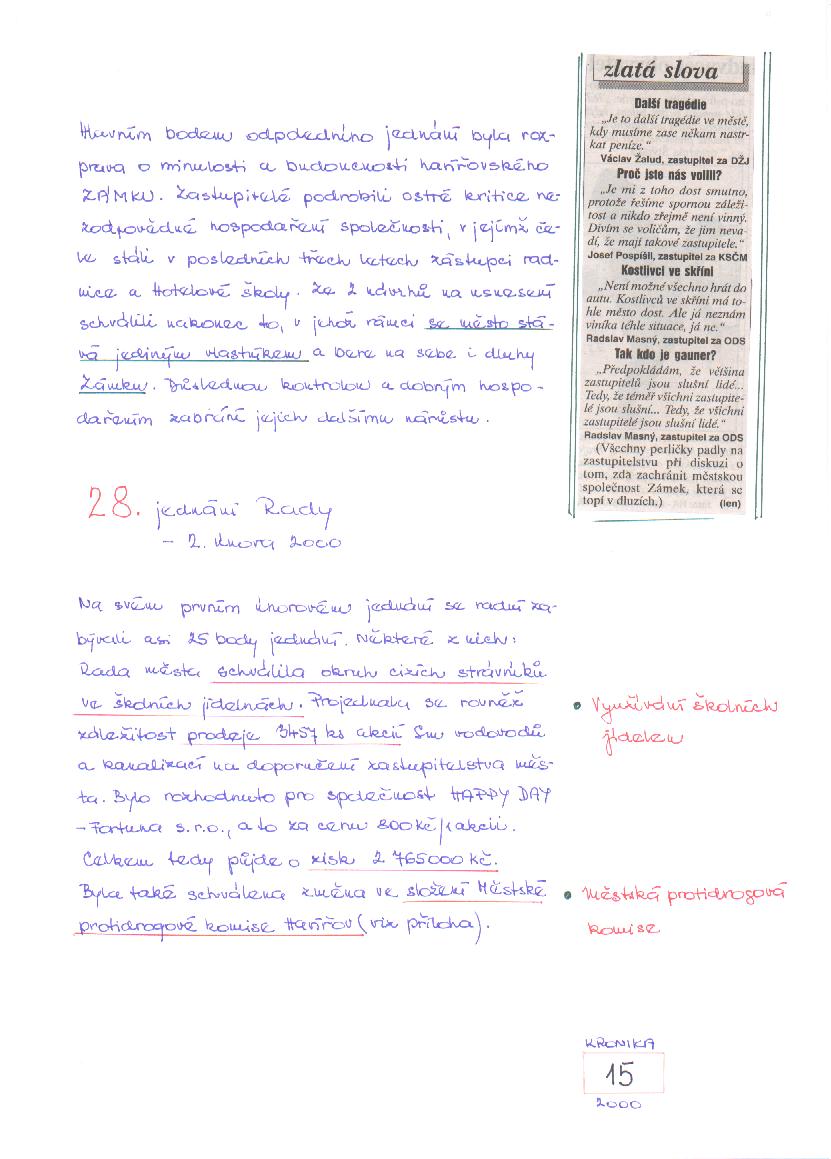 Hlavním bodem odpoledního jednání byla roz-
prava o minulosti a budoucnosti havířovského
ZÁMKU. Zastupitelé podrobili ostré kritice ne-
zodpovědné hospodaření společnosti, v jejímž če-
le stáli v posledních třech letech zástupci rad-
nice a Hotelové školy. Ze 2 návrhů na usnesení
schválili nakonec to, v jehož rámci se město stá-
vá jediným vlastníkem a bere na sebe i dluhy
Zámku. Důslednou kontrolou a dobrým hospo-
dařením zabrání jejich dalšímu nárůstu.
zlatá slova
Další tragédie
„Je to další tragédie ve městě,
kdy musíme zase někam nastr-
kat peníze.“
Václav Žalud, zastupitel za DŽJ
Proč jste nás volili?
„Je mi z toho dost smutno,
protože řešíme spornou záleži-
tost a nikdo zřejmě není vinný.
Divím se voličům, že jim neva-
dí, že mají takové zastupitele.“
Josef Pospíšil, zastupitel za KSČM
Kostlivci ve skříni
„Není možné všechno hrát do
autu. Kostlivců ve skříni má to-
hle město dost. Ale já neznám
viníka téhle situace, já ne.“
Radslav Masný, zastupitel za ODS
Tak kdo je gauner?
„Předpokládám, že většina
zastupitelů jsou slušní lidé...
Tedy, že téměř všichni zastupite-
lé jsou slušní... Tedy, že všichni
zastupitelé jsou slušní lidé.“
Radslav Masný, zastupitel za ODS
(Všechny perličky padly na
zastupitelstvu při diskuzi o
tom, zda zachránit městskou
společnost Zámek, která se
topí v dluzích.) (len)
28. jednání Rady
- 2. února 2000
Na svém prvním únorovém jednání se radní za-
bývali asi 25 body jednání. Některé z nich:
Rada města schválila okruh cizích strávníků
ve školních jídelnách. Projednala se rovněž
záležitost prodeje 3457 ks akcií Sm vodovodů
a kanalizací na doporučení zastupitelstva měs-
ta. Bylo rozhodnuto pro společnost HAPPY DAY
- Fortuna s.r.o., a to za cenu 800 kč/1 akcii.
Celkem tedy půjde o zisk 2 765000 Kč.
Byla také schválena změna ve složení Městské
protidrogové komise Havířov (viz příloha).
• Využívání školních
jídelen
• Městská protidrogová
komise
KRONIKA
15
2000